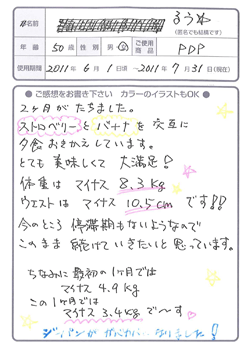 お名前 るうね
(匿名でも結構です)
年齢 50歳 性別 男・女 ご使用商品 PDP
使用期間 2011年6月1日頃～2011年7月31日(現在)
●ご感想をお書き下さい カラーのイラストもOK●
2ヶ月がたちました。
ストロベリーとバナナを交互に
夕食おきかえしています。
とても美味しくて大満足!
体重はマイナス8.3kg
ウエストはマイナス10.5cmです!!
今のところ停滞期もないようなので
このまま続けていきたいと思っています。
ちなみに最初の1ヶ月では
マイナス4.9kg
この1ヶ月では
マイナス3.4kgで～す
ジーパンがガバガバになりました!